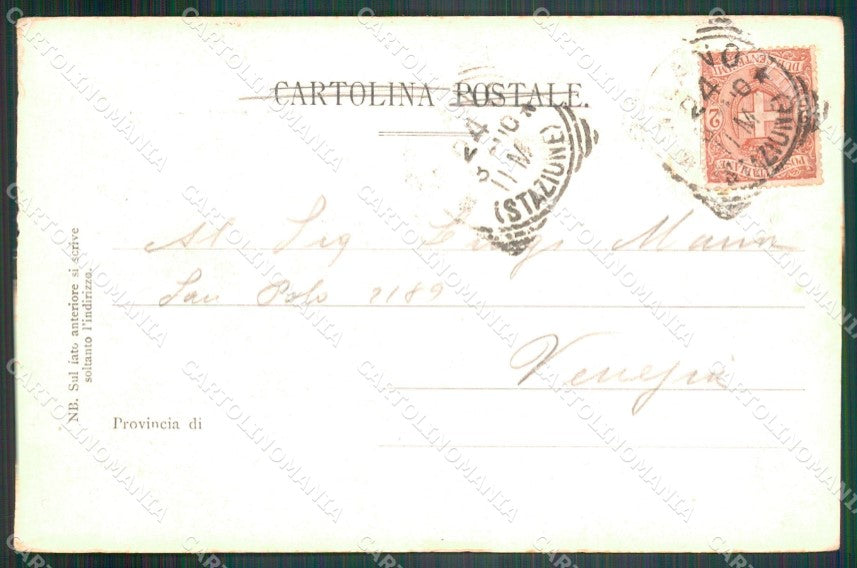 CARTOLINA POSTALE.
24
11 M
(STAZIONE)
24
11 M
(STAZIONE)
Al Sig Luigi Marin
San Polo 2189
Venezia
Provincia di
NB. Sul lato anteriore si scrive
soltanto l'indirizzo.
CARTOLINOMANIA